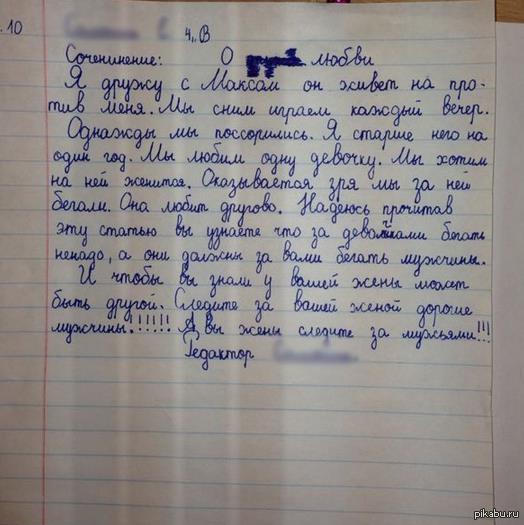 . 10
4„В
Сочинение: О любви
Я дружу с Максом он живет на про-
тив меня. Мы сним играем каждый вечер.
Однажды мы поссорились. Я старше него на
один год. Мы любим одну девочку. Мы хотим
на ней женится. Оказывается зря мы за ней
бегали. Она любит другово. Надеюсь прочитав
эту статью вы узнаете что за девочками бегать
ненадо, а они должны за вами бегать мужчины.
И чтобы вы знали у вашей жены может
быть другой. Следите за вашей женой дороше
мужчины!!!!!! А вы жены следите за мужьями!!!
Редактор
pikabu.ru